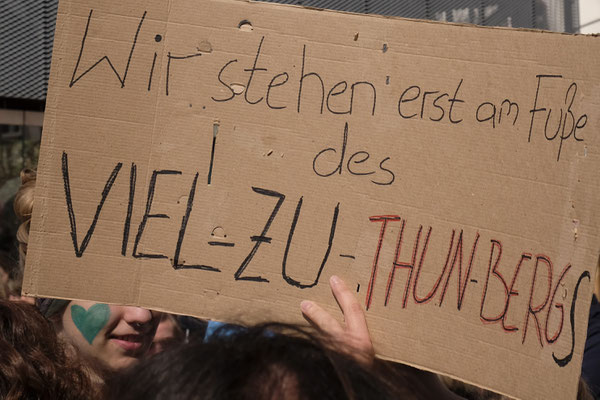 Wir stehen erst am Fuße
des
VIEL-ZU-THUN-BERGS